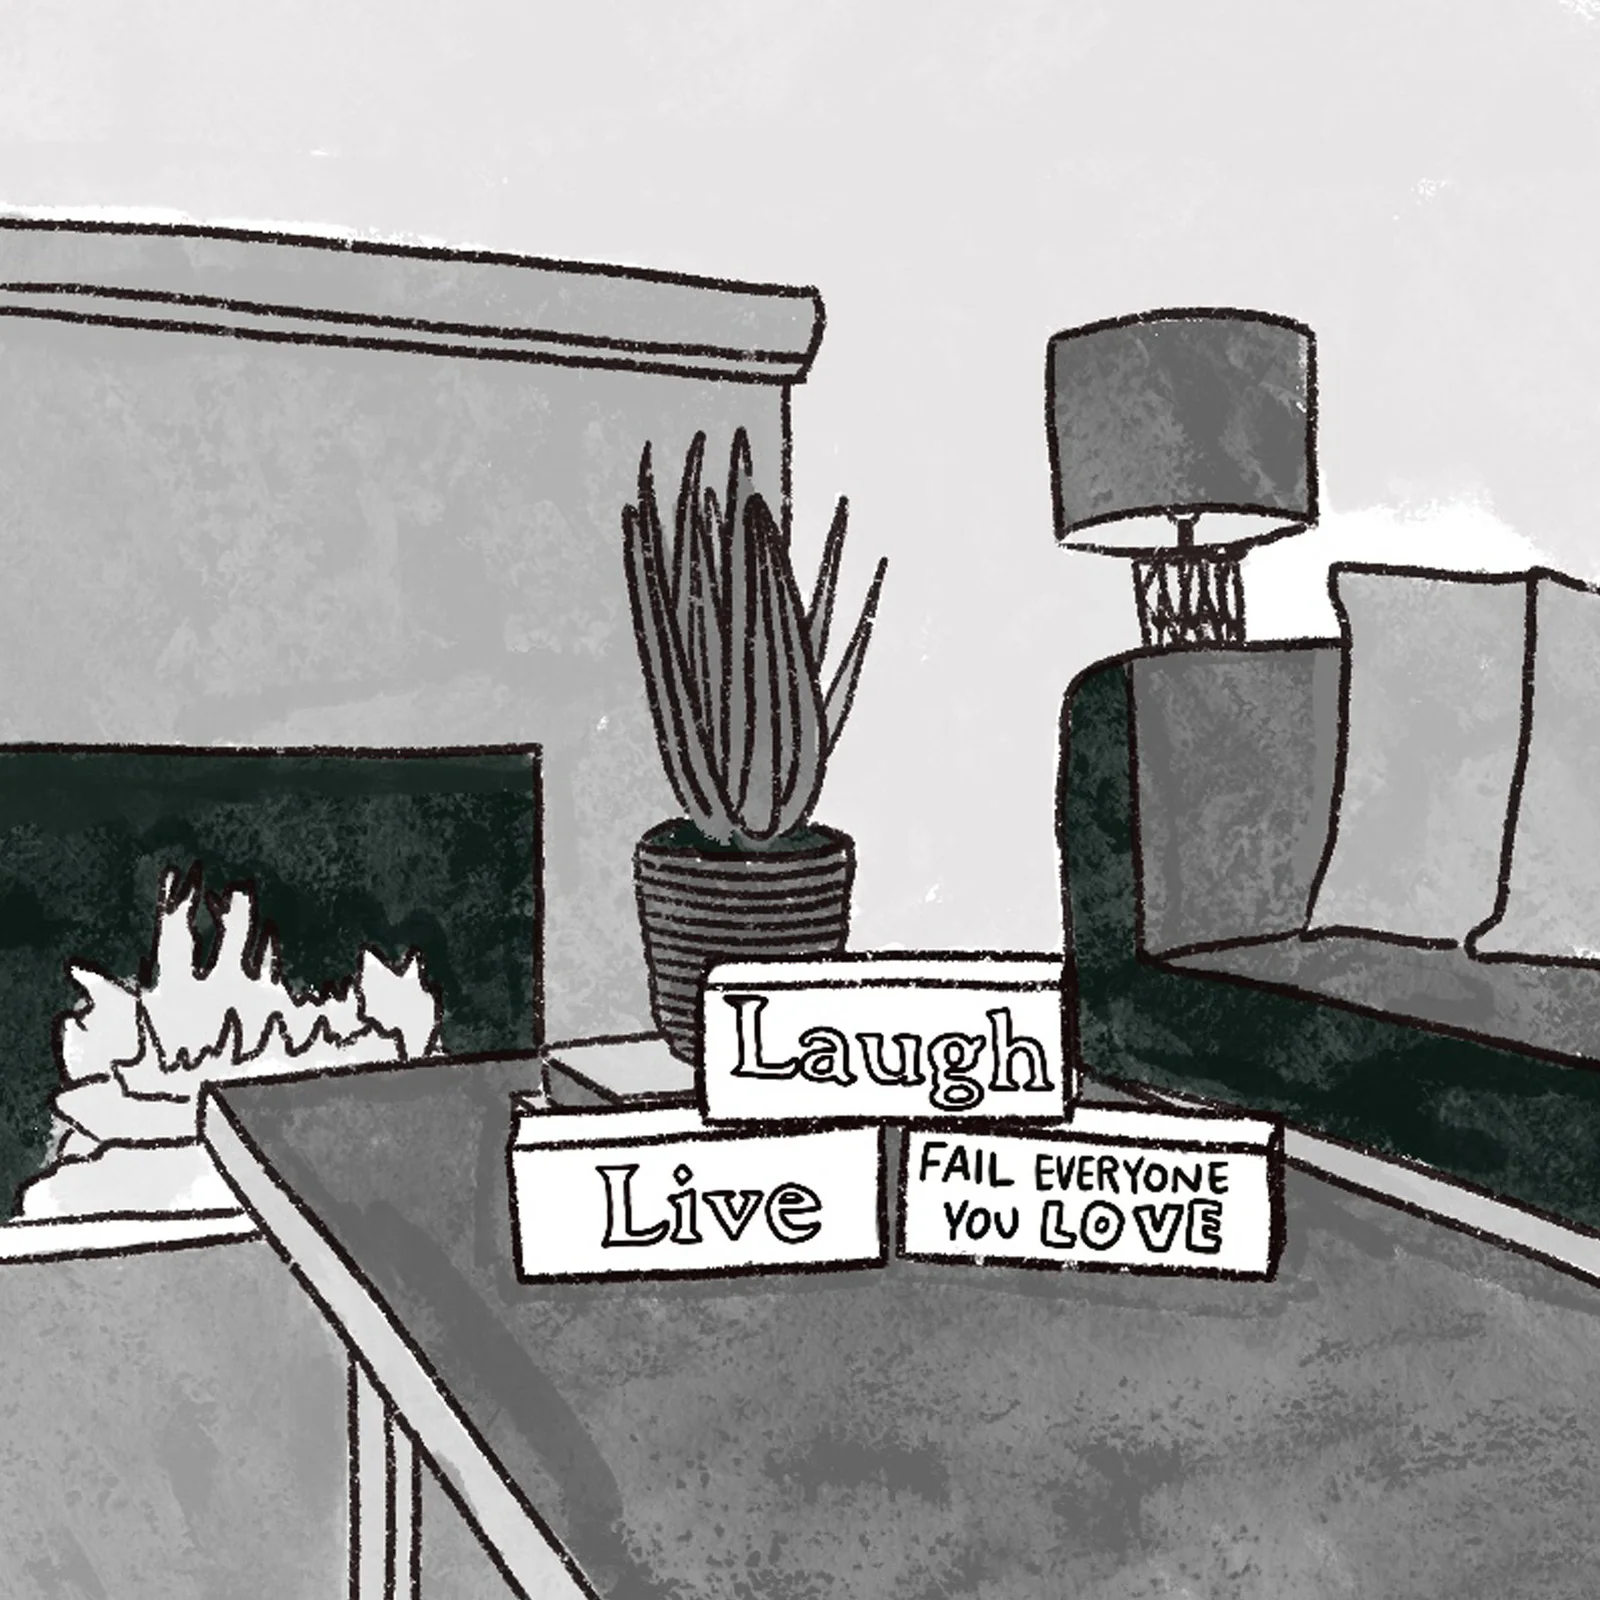 Laugh
Live
FAIL EVERYONE
YOU LOVE